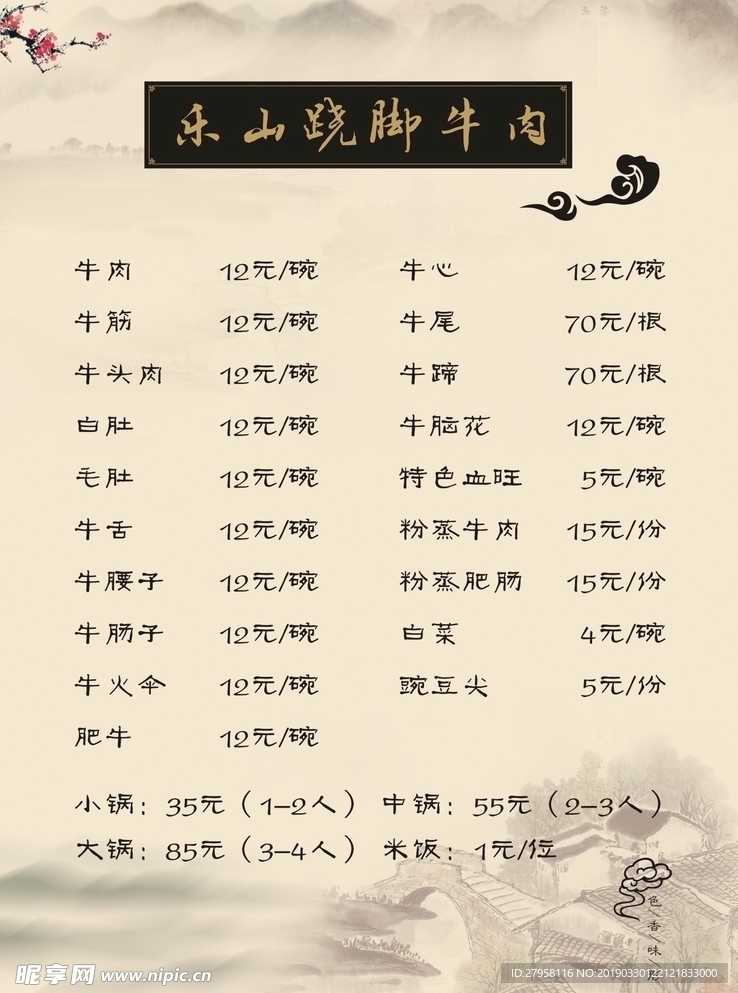 乐山跷脚牛肉
牛肉 12元/碗 牛心 12元/碗
牛筋 12元/碗 牛尾 70元/根
牛头肉 12元/碗 牛蹄 70元/根
白肚 12元/碗 牛脑花 12元/碗
毛肚 12元/碗 特色血旺 5元/碗
牛舌 12元/碗 粉蒸牛肉 15元/份
牛腰子 12元/碗 粉蒸肥肠 15元/份
牛肠子 12元/碗 白菜 4元/碗
牛火伞 12元/碗 豌豆尖 5元/份
肥牛 12元/碗
小锅：35元（1-2人） 中锅：55元（2-3人）
大锅：85元（3-4人） 米饭：1元/位
色\香\味\
昵享网 www.nipic.cn
ID:27958116 NO:20190330122121833000